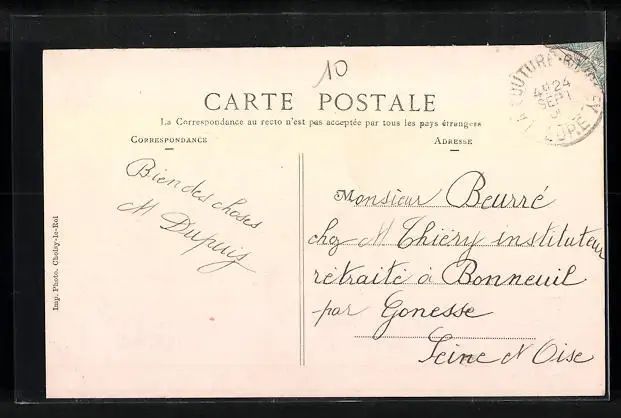 10
CARTE POSTALE
La Correspondance au recto n'est pas acceptée par tous les pays étrangers
CORRESPONDANCE
ADRESSE
Bien des choses
M Dupuis
Monsieur Beurré
chez M Thiéry instituteur
retraité à Bonneuil
par Gonesse
Seine et Oise
Imp. Photo. Choisy-le-Roi
LA COUTURE-BOUSSEY
24
SEPT
EURE